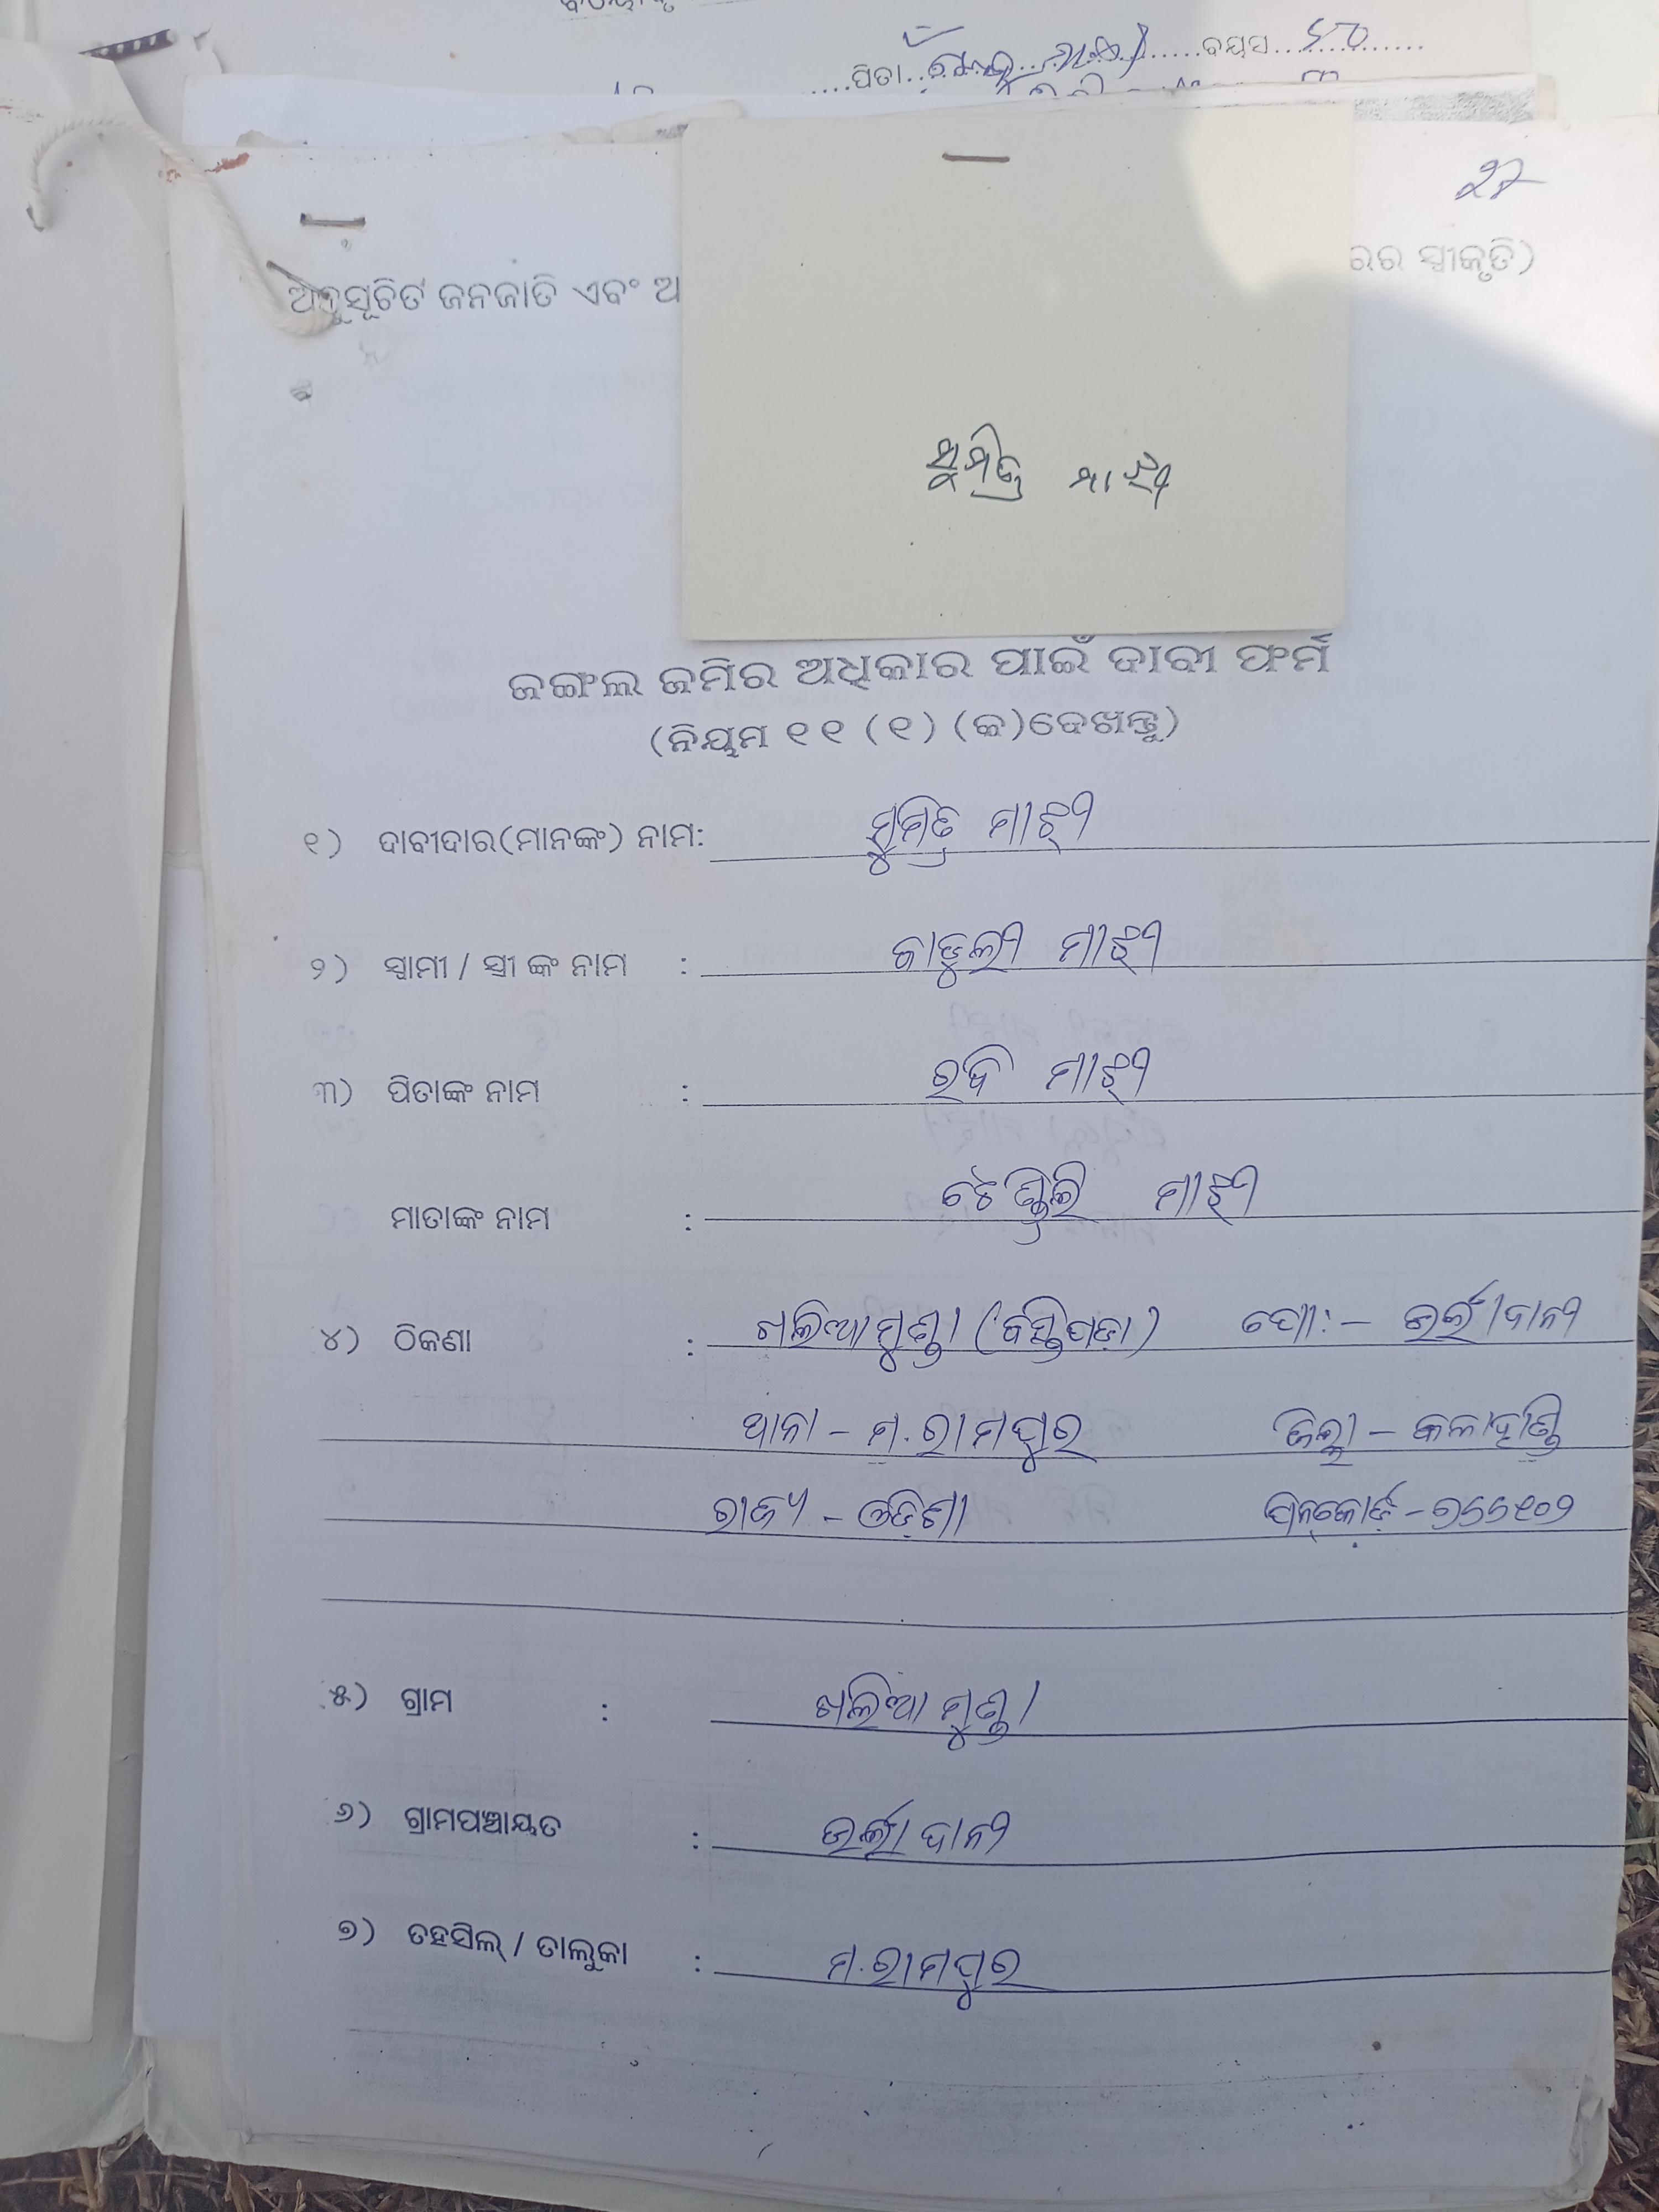 ପିତା ବୟସ ୪୦
୨୮
ରର ସ୍ୱୀକୃତି)
ଅନୁସୂଚିତ ଜନଜାତି ଏବଂ ଅ
ସୁମିତ୍ର ମାଝୀ
ଜଙ୍ଗଲ ଜମିର ଅଧିକାର ପାଇଁ ଦାବୀ ଫର୍ମ
(ନିୟମ ୧୧ (୧) (କ)ଦେଖନ୍ତୁ)
୧) ଦାବୀଦାର(ମାନଙ୍କ) ନାମ: ସୁମିତ୍ର ମାଝୀ
୨) ସ୍ୱାମୀ / ସ୍ତ୍ରୀ ଙ୍କ ନାମ : ବାଡୁଲୀ ମାଝୀ
୩) ପିତାଙ୍କ ନାମ : ରବି ମାଝୀ
ମାତାଙ୍କ ନାମ : ମାଝୀ
୪) ଠିକଣା : ଖଲିଆମୁଣ୍ଡା (ବସ୍ତିପଡା) ପୋ:- ଉର୍ଲାଦାନୀ
ଥାନା - ମ.ରାମପୁର ଜିଲ୍ଲା - କଳାହାଣ୍ଡି
ରାଜ୍ୟ - ଓଡ଼ିଶା ପିନକୋଡ଼ - ୭୬୬୧୦୨
୫) ଗ୍ରାମ : ଖଲିଆମୁଣ୍ଡା
୬) ଗ୍ରାମପଞ୍ଚାୟତ : ଉର୍ଲାଦାନୀ
୭) ତହସିଲ୍ / ତାଲୁକା : ମ.ରାମପୁର